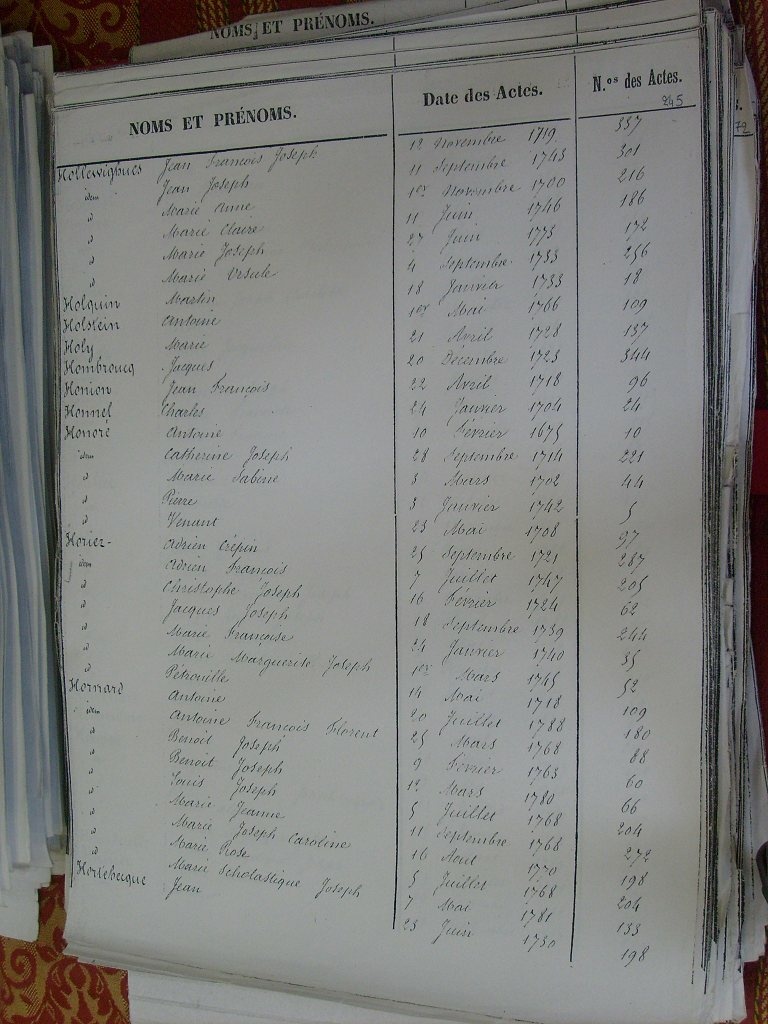 NOMS ET PRÉNOMS.
NOMS ET PRÉNOMS. Date des Actes. N.os des Actes.
245
72
Hollewighues Jean François Joseph 12 Novembre 1719 337
idem Jean Joseph 11 Septembre 1743 301
d Marie Anne 1er Novembre 1700 216
d Marie Claire 11 Juin 1746 186
d Marie Joseph 27 Juin 1773 172
d Marie Ursule 4 Septembre 1733 256
Holquin Martin 18 Janvier 1733 18
Holstein Antoine 1er Mai 1766 109
Holy Marie 21 Avril 1728 137
Hombroucq Jacques 20 Décembre 1723 344
Honion Jean François 22 Avril 1718 96
Honnel Charles 24 Janvier 1704 24
Honoré Antoine 10 Février 1675 10
idem Catherine Joseph 28 Septembre 1714 221
d Marie Sabine 3 Mars 1702 44
d Pierre 3 Janvier 1742 5
d Venant 23 Mai 1708 97
Horiez Adrien Crépin 25 Septembre 1721 287
idem Adrien François 7 Juillet 1747 205
d Christophe Joseph 16 Février 1724 62
d Jacques Joseph 18 Septembre 1739 244
d Marie Françoise 24 Janvier 1740 35
d Marie Marguerite Joseph 1er Mars 1745 52
d Pétronille 14 Mai 1718 109
Hornard Antoine 20 Juillet 1788 180
idem Antoine François Florent 25 Mars 1768 88
d Benoit Joseph 9 Février 1763 60
d Benoit Joseph 12 Mars 1780 66
d Louis Joseph 5 Juillet 1768 204
d Marie Jeanne 11 Septembre 1768 272
d Marie Joseph Caroline 16 Aout 1770 198
d Marie Rose 5 Juillet 1768 204
d Marie Scholastique Joseph 7 Mai 1781 133
Hortebecque Jean 23 Juin 1730 198